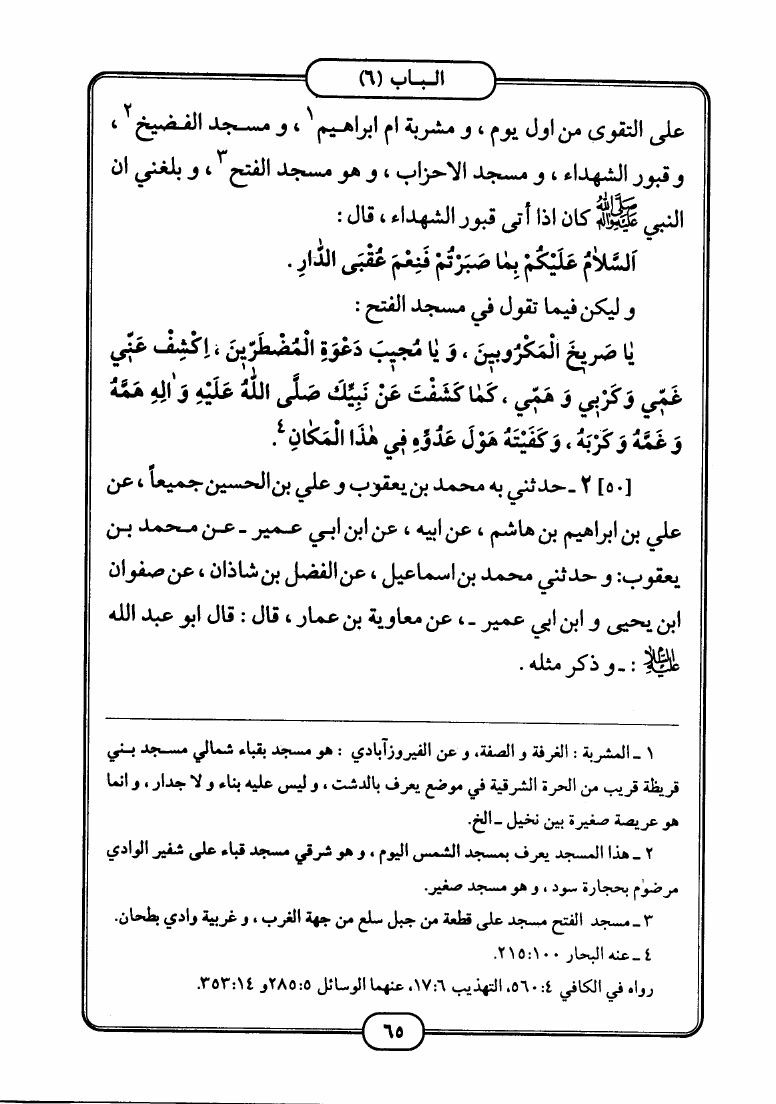 الـبـاب (٦)
على التقوى من اول يوم ، و مشربة ام ابراهـيم١ ، و مسـجد الفـضيخ٢ ،
و قبور الشهداء ، و مسجد الاحزاب ، و هو مسجد الفتح٣ ، و بلغني ان
النبي ﷺ كان اذا أتى قبور الشهداء ، قال :
اَلسَّلاٰمُ عَلَيْكُمْ بِمٰا صَبَرْتُمْ فَنِعْمَ عُقْبَى الدّٰارِ .
و ليكن فيما تقول في مسجد الفتح :
يٰا صَرِيخَ الْمَكْرُوبِينَ ، وَ يٰا مُجِيبَ دَعْوَةِ الْمُضْطَرِّينَ ، اِكْشِفْ عَنّي
غَمّي وَ كَرْبي وَ هَمّي ، كَمٰا كَشَفْتَ عَنْ نَبِيِّكَ صَلَّى اللّٰهُ عَلَيْهِ وَ اٰلِهِ هَمَّهُ
وَ غَمَّهُ وَ كَرْبَهُ ، وَ كَفَيْتَهُ هَوْلَ عَدُوِّهِ فِي هٰذَا الْمَكٰانِ٤.
[٥٠] ٢ ـ حدثني به محمد بن يعقوب و علي بن الحسين جميعاً ، عن
علي بن ابراهيم بن هاشم ، عن ابيه ، عن ابن ابـي عـمير ـ عـن مـحمد بـن
يعقوب: و حدثني محمد بن اسماعيل ، عن الفضل بن شاذان ، عن صفوان
ابن يحيى و ابن ابي عمير ـ، عن معاوية بن عمار ، قال : قال ابو عبد الله
عليه السلام : ـ و ذكر مثله .
١ ـ المشربة : الغرفة و الصفة، و عن الفيروزآبادي : هو مسجد بقباء شمالي مسـجد بـني
قريظة قريب من الحرة الشرقية في موضع يعرف بالدشت ، و ليس عليه بناء و لا جدار ، و انما
هو عريصة صغيرة بين نخيل ـ الخ.
٢ ـ هذا المسجد يعرف بمسجد الشمس اليوم ، و هو شرقي مسجد قباء على شفير الوادي
مرضوم بحجارة سود ، و هو مسجد صغير.
٣ ـ مسجد الفتح مسجد على قطعة من جبل سلع من جهة الغرب ، و غربية وادي بطحان.
٤ ـ عنه البحار ١٠٠:٢١٥.
رواه في الكافي ٤:٥٦٠، التهذيب ٦:١٧، عنهما الوسائل ٥:٢٨٥ و ١٤:٣٥٣.
٦٥